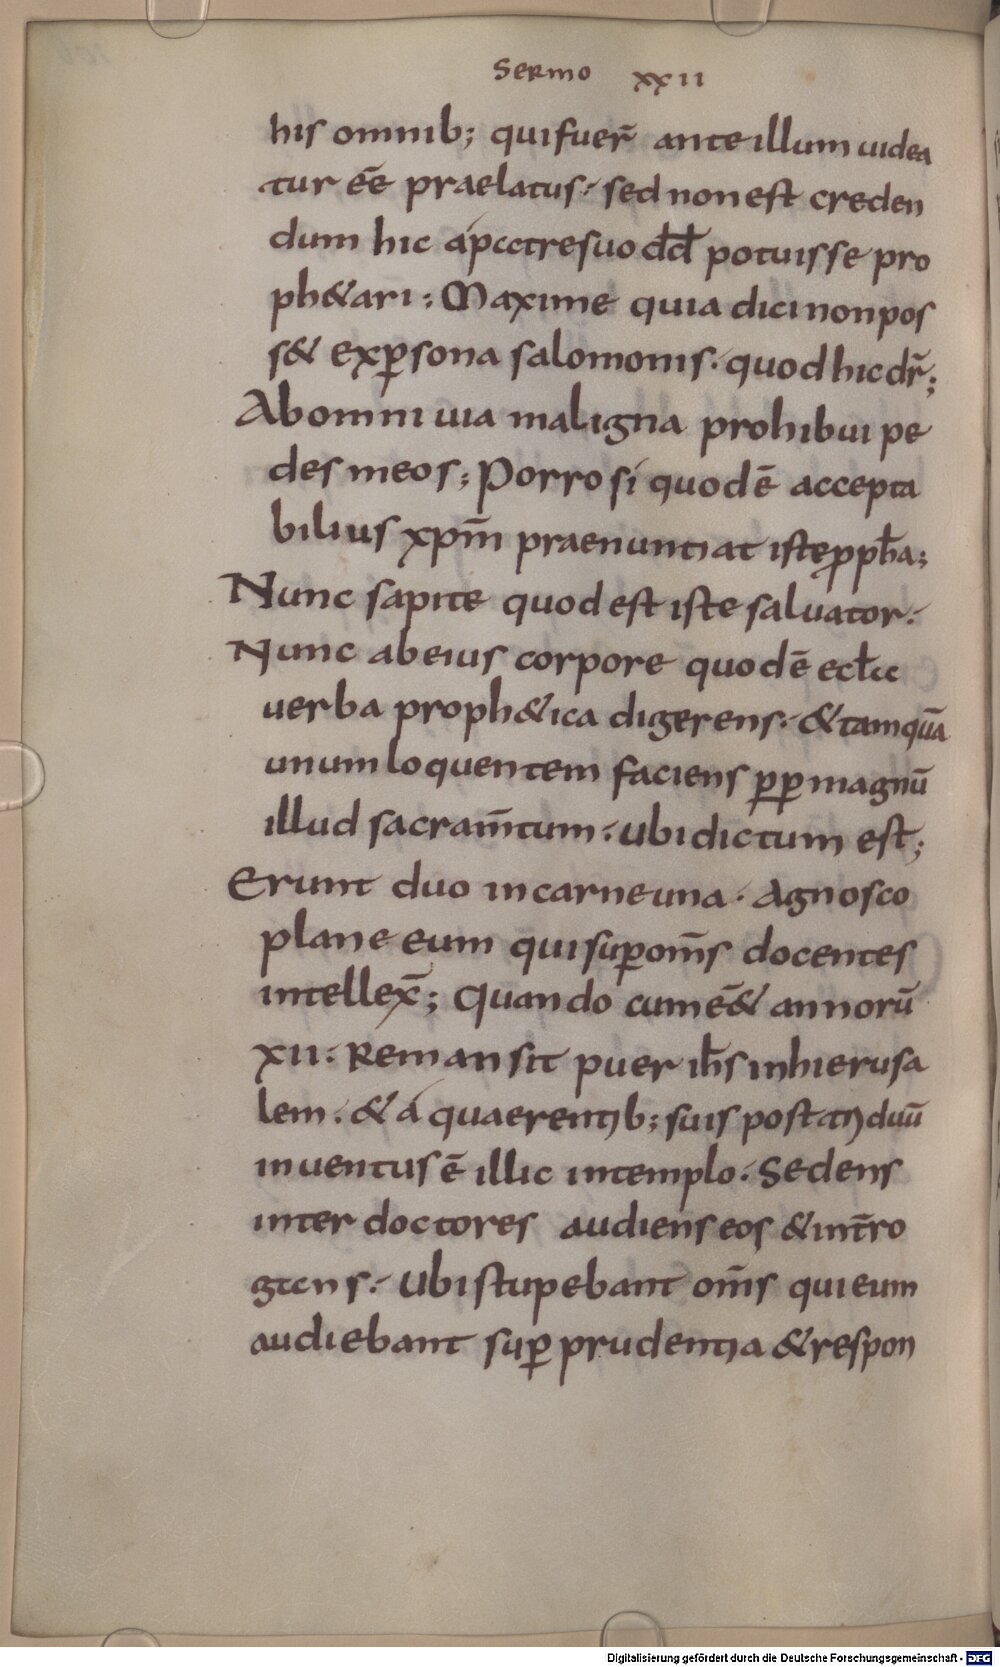 Sermo xxii
his omnib; qui fuer̄ ante illum uidea
tur ēe praelatus. sed non est creden
dum hic a patre suo dd̄ potuisse pro
ph&ari; Maxime quia dici non pos
s& ex persona salomonis. quod hic dr̄;
Ab omni uia maligna prohibui pe
des meos; Porro si quod ē accepta
bilius xp̄m praenuntiat iste propha;
Nunc sapite quod est iste saluator.
Nunc ab eius corpore quod ē eccla
uerba proph&ica digerens. & tamquā
unum loquentem faciens pp magnū
illud sacram̄tum. ubi dictum est;
Erunt duo in carne una. Agnosco
plane eum qui sup om̄s docentes
intellex̄; Quando cum ē& annorū
xii. Remansit puer ih̄s in hierusa
lem. & a quaerentib; suis post triduū
inuentus ē illic in templo. Sedens
inter doctores audiens eos & int̄ro
gans. Ubi stupebant om̄s qui eum
audiebant sup prudentia & respon
Digitalisierung gefördert durch die Deutsche Forschungsgemeinschaft - DFG